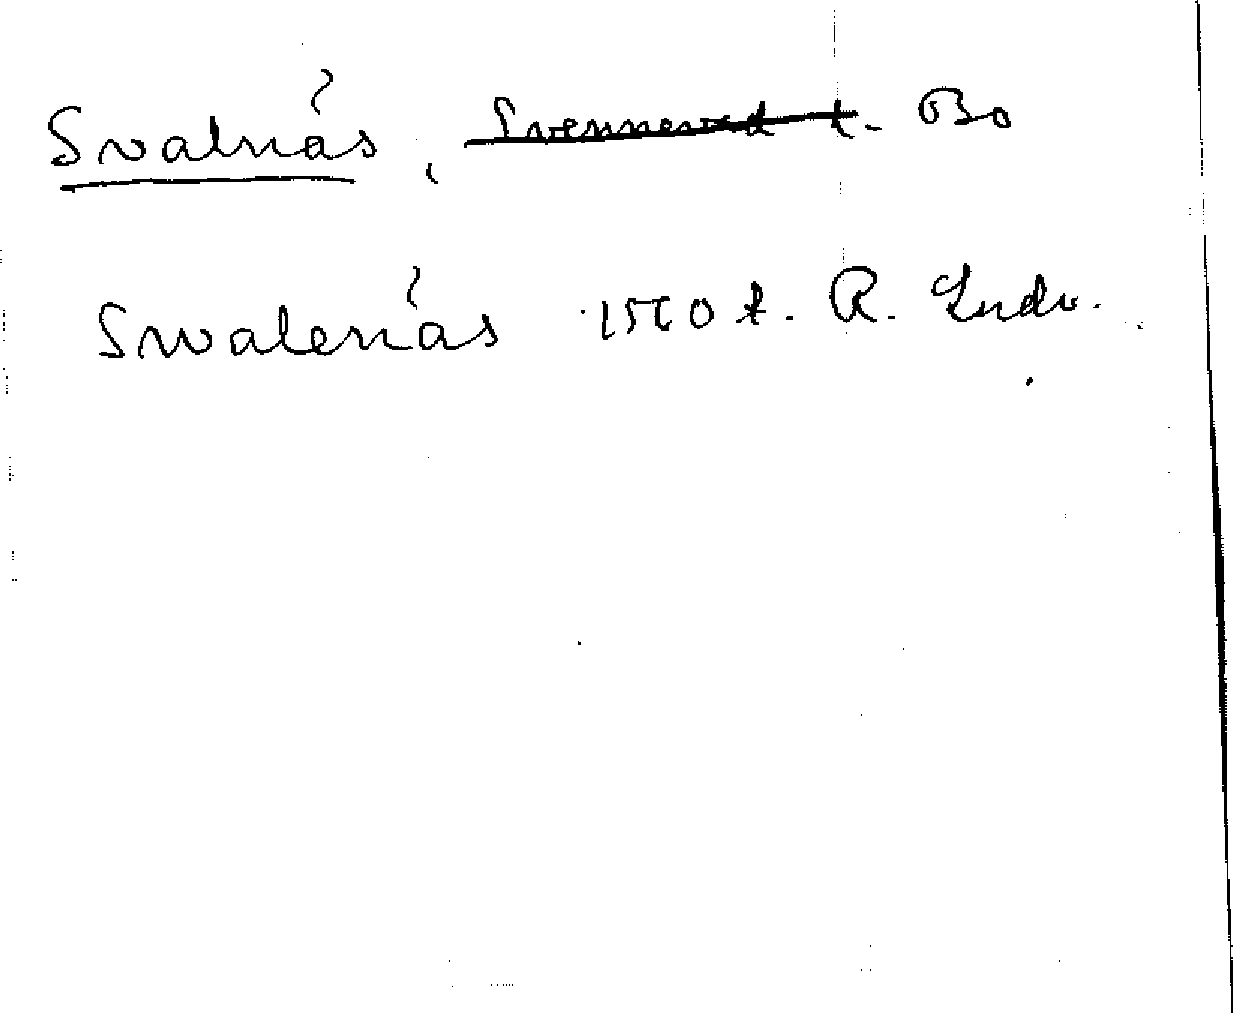 Svalnäs, Svennevad t. Bo
Swalenäs 1560 t. R. Indv.